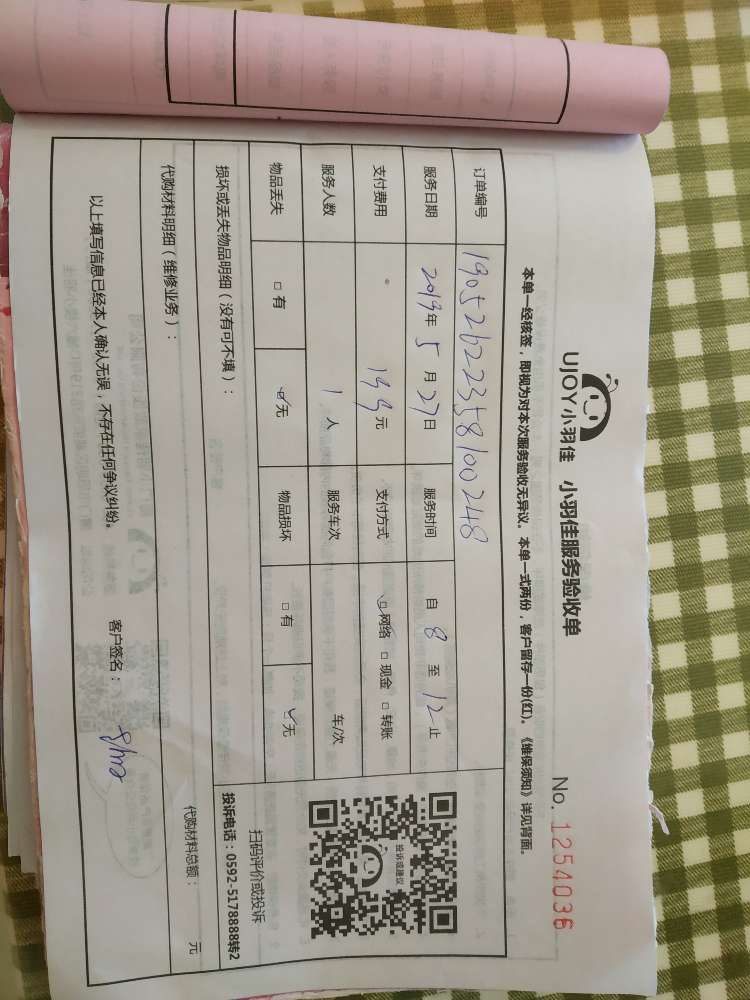 UJOY小羽佳 小羽佳服务验收单
No. 1254036
本单一经核签，即视为对本次服务验收无异议。本单一式两份，客户留存一份(红)。《维保须知》详见背面。
订单编号 190526223358100248
服务日期 2019年 5 月 27日 服务时间 自 8 至 12 止
支付费用 199元 支付方式 ☑网络 □现金 □转账
服务人数 1 人 服务车次 车/次
物品丢失 □有 ☑无 物品损坏 □有 ☑无
投诉或建议
扫码评价或投诉
投诉电话：0592-5178888转2
损坏或丢失物品明细（没有可不填）：
代购材料明细（维修业务）： 代购材料总额： 元
以上填写信息已经本人确认无误，不存在任何争议纠纷。
客户签名：